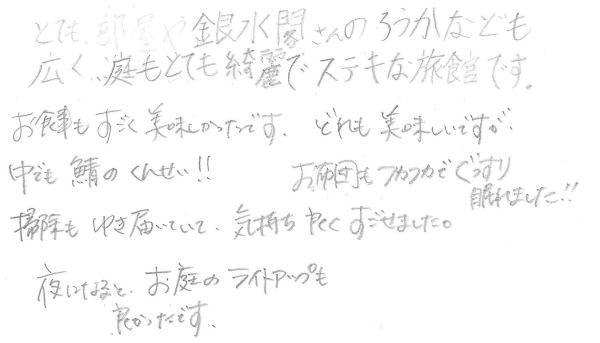 とても、部屋や銀水閣さんのろうかなども
広く、庭もとても綺麗でステキな旅館です。
お食事もすごく美味しかったです。どれも美味しいですが、
中でも鯖のくんせい!!
お布団もフカフカでぐっすり
眠れました!!
掃除もゆき届いていて、気持ち良くすごせました。
夜になると、お庭のライトアップも
良かったです。